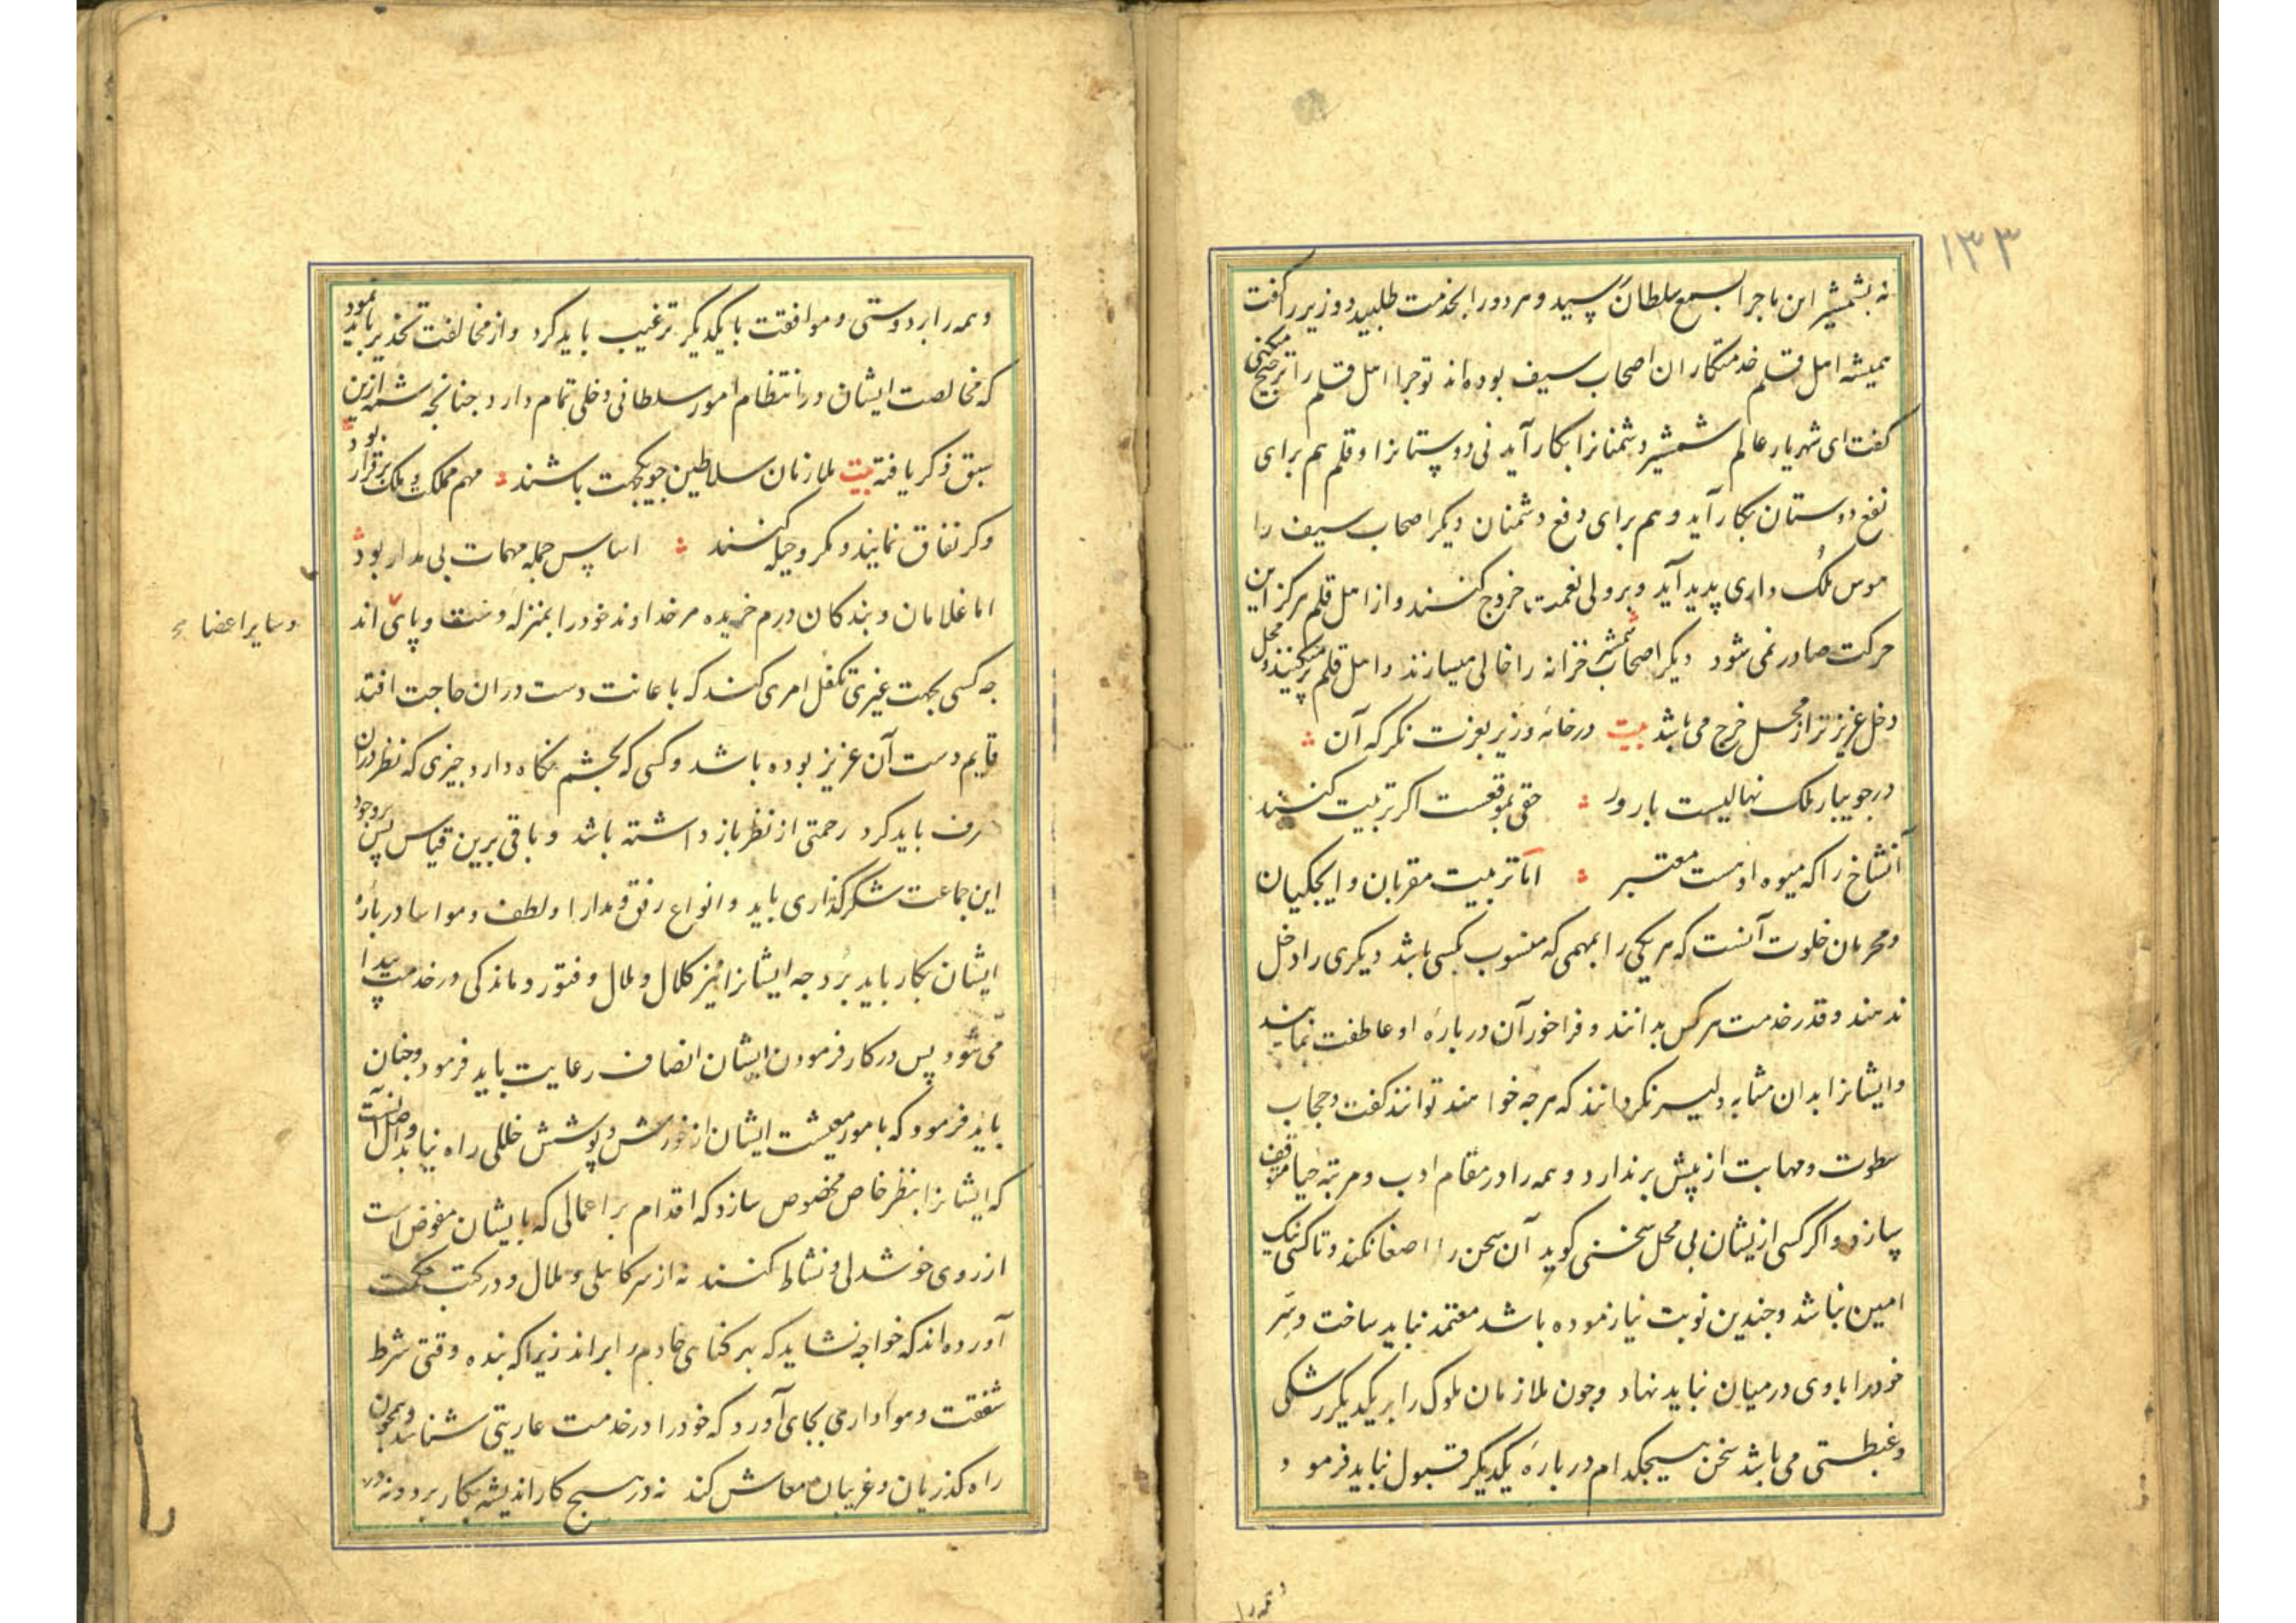 ۱۳۳
نه بشمشیر این ماجرا بسمع سلطان رسید و هر دو را بخدمت طلبید و وزیر را گفت
همیشه اهل قلم خدمتکاران اصحاب سیف بوده‌اند تو چرا اهل قلم را ترجیح میکنی
گفت ای شهریار عالم شمشیر دشمنانرا بکار آید نی دوستانرا و قلم هم برای
نفع دوستان بکار آید و هم برای دفع دشمنان دیگر اصحاب سیف را
هوس ملک داری پدید آید و بر ولی نعمت خروج کنند و از اهل قلم هرگز این
حرکت صادر نمی شود دیگر اصحاب شمشیر خزانه را خالی میسازند و اهل قلم پر میکنند و محل
دخل عزیزتر از محل خرج می باشد بیت در خانه وزیر بعزت نگر که آن
در جویبار ملک نهالیست بارور حقی بموقعست اگر تربیت کنند
آنشاخ را که میوه اوست معتبر اما تربیت مقربان و ایچکیان
و محرمان خلوت آنست که هر یکی را بمهمی که منسوب بکسی باشد دیگری را دخل
ندهند و قدر خدمت هر کس بدانند و فراخور آن درباره او عاطفت نمایند
و ایشانرا بدان مثابه دلیر نگردانند که هرچه خواهند توانند گفت و حجاب
سطوت و مهابت از پیش برندارد و همه را در مقام ادب و مرتبه حیا موقف
سازد و اگر کسی ازیشان بی محل سخنی گوید آن سخن را اصغا نکند و تا کسی نیک
امین نباشد و چندین نوبت نیازموده باشد معتمد نباید ساخت و سر
خود را با وی در میان نباید نهاد و چون ملازمان ملوک را بر یکدیگر رشکی
و غبطتی می باشد سخن هیچکدام درباره یکدیگر قبول نباید فرمود
و همه را
و همه را بر دوستی و موافقت با یکدیگر ترغیب باید کرد و از مخالفت تحذیر باید نمود
که مخالصت ایشان در انتظام امور سلطانی دخلی تمام دارد چنانچه شمه ازین
سبق ذکر یافته بیت ملازمان سلاطین چو یکجهت باشند مهم مملکت و ملک برقرار بود
وگر نفاق نمایند و مکر و حیله کنند اساس جمله مهمات بی مدار بود
اما غلامان و بندکان درم خریده مر خداوند خود را بمنزله دست و پای اند
و سایر اعضا
چه کسی بجهت غیری تکفل امری کند که باعانت دست دران حاجت افتد
قایم دست آن عزیز بوده باشد و کسی که بچشم نگاه دارد چیزی که نظر دران
صرف باید کرد زحمتی از نظر باز داشته باشد و باقی برین قیاس پس بر وجود
این جماعت شکرگذاری باید و انواع رفق و مدارا و لطف و مواسا درباره
ایشان بکار باید برد چه ایشانرا نیز کلال و ملال و فتور و ماندگی در خدمت پیدا
می شود پس در کار فرمودن ایشان انصاف رعایت باید فرمود و چنان
باید فرمود که بامور معیشت ایشان از خورش و پوشش خللی راه نیابد و اصل آنست
که ایشانرا بنظر خاص مخصوص سازد که اقدام بر اعمالی که بایشان مفوض است
از روی خوشدلی و نشاط کنند نه از سر کاهلی و ملال و در کتب حکمت
آورده‌اند که خواجه نشاید که بهر گناهی خادم را براند زیرا که بنده وقتی شرط
شفقت و هواداری بجای آورد که خود را در خدمت عاریتی شناسد و همچون
راه گذریان و غریبان معاش کند نه در هیچ کار اندیشه بکار برد و نه در